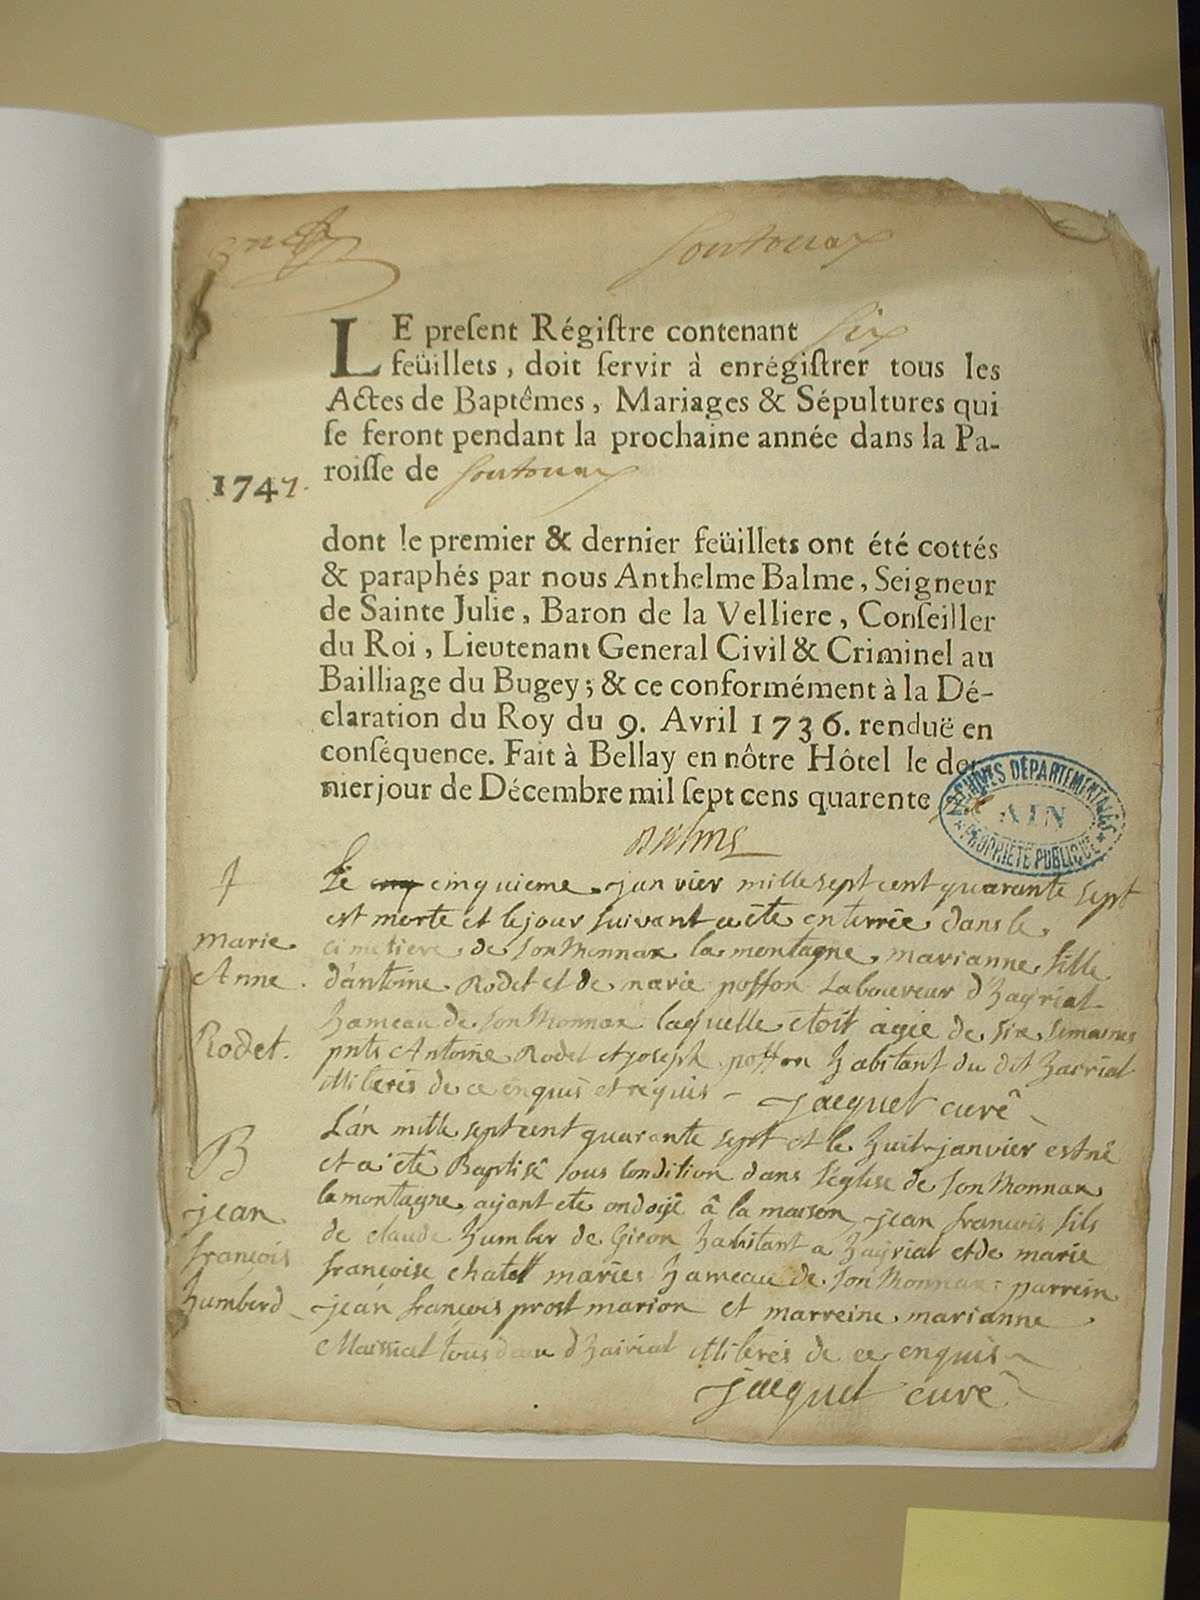 Sontonax
LE present Régistre contenant six
feüillets, doit servir à enrégistrer tous les
Actes de Baptêmes, Mariages & Sépultures qui
se feront pendant la prochaine année dans la Pa-
roisse de Sontonax
1747.
dont le premier & dernier feüillets ont été cottés
& paraphés par nous Anthelme Balme, Seigneur
de Sainte Julie, Baron de la Velliere, Conseiller
du Roi, Lieutenant General Civil & Criminel au
Bailliage du Bugey; & ce conformément à la Dé-
claration du Roy du 9. Avril 1736. renduë en
conséquence. Fait à Bellay en nôtre Hôtel le der-
nier jour de Décembre mil sept cens quarente six
ARCHIVES DÉPARTEMENTALES
AIN
PROPRIÉTÉ PUBLIQUE
Balme
Le cinquieme janvier mille sept cent quarante sept
est morte et le jour suivant a èté enterrée dans le
marie cimetiere de sonthonnax la montagne marianne fille
Anne d'antoine Rodet et de marie poffon laboureur d'hayriat
hameau de sonthonnax laquelle etoit agée de six semaines
Rodet. pnts Antoine Rodet et joseph poffon habitant du dit hairiat
illiterés de ce enquis et requis jacquet curé
L'an mille sept cent quarante sept et le huit janvier est né
B et a été Baptisé sous condition dans l'église de sonthonnax
la montagne, ayant eté ondoyé â la maison, jean francois fils
jean de claude humber de Giron habitant a hayriat et de marie
françois francoise chatel mariés hameau de sonthonnax parrein
humberd jean francois prost marion et marreine marianne
Maissiat tous deux d'hairiat illiterés de ce enquis
jacquet curé